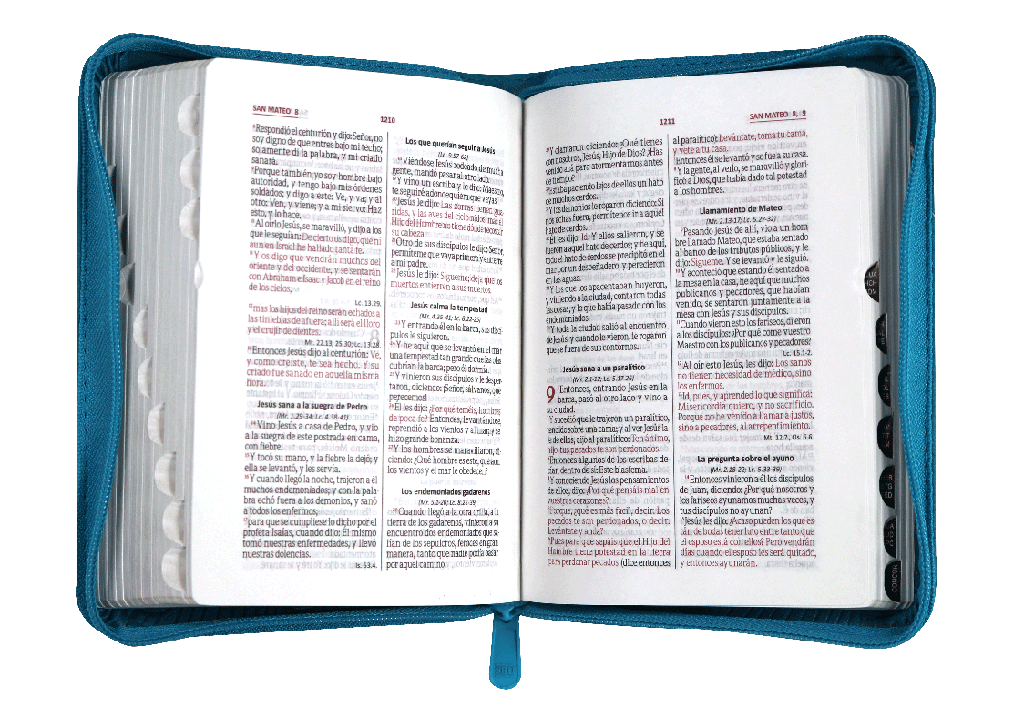 SAN MATEO 8
1210
Respondió el centurión y dijo: Señor, no
soy digno de que entres bajo mi techo;
solamente di la palabra, y mi criado
sanará.
Porque también yo soy hombre bajo
autoridad, y tengo bajo mis órdenes
soldados; y digo a éste: Ve, y va; y al
otro: Ven, y viene; y a mi siervo: Haz
esto, y lo hace.
Al oírlo Jesús, se maravilló, y dijo a los
que le seguían: De cierto os digo, que ni
aun en Israel he hallado tanta fe.
Y os digo que vendrán muchos del
oriente y del occidente, y se sentarán
con Abraham e Isaac y Jacob en el reino
de los cielos;
Lc. 13.29.
mas los hijos del reino serán echados a
las tinieblas de afuera; allí será el lloro
y el crujir de dientes.
Mt. 22.13; 25.30; Lc. 13.28.
Entonces Jesús dijo al centurión: Ve,
y como creíste, te sea hecho. Y su
criado fue sanado en aquella misma
hora.
Jesús sana a la suegra de Pedro
(Mr. 1.29-34; Lc. 4.38-41)
Vino Jesús a casa de Pedro, y vio
a la suegra de éste postrada en cama,
con fiebre.
Y tocó su mano, y la fiebre la dejó; y
ella se levantó, y les servía.
Y cuando llegó la noche, trajeron a él
muchos endemoniados; y con la pala-
bra echó fuera a los demonios, y sanó
a todos los enfermos;
para que se cumpliese lo dicho por el
profeta Isaías, cuando dijo: Él mismo
tomó nuestras enfermedades, y llevó
nuestras dolencias.
Is. 53.4.
Los que querían seguir a Jesús
(Lc. 9.57-62)
Viéndose Jesús rodeado de mucha
gente, mandó pasar al otro lado.
Y vino un escriba y le dijo: Maestro,
te seguiré adondequiera que vayas.
Jesús le dijo: Las zorras tienen gua-
ridas, y las aves del cielo nidos; mas el
Hijo del Hombre no tiene dónde recostar
su cabeza.
Otro de sus discípulos le dijo: Señor,
permíteme que vaya primero y entierre
a mi padre.
Jesús le dijo: Sígueme; deja que los
muertos entierren a sus muertos.
Jesús calma la tempestad
(Mr. 4.35-41; Lc. 8.22-25)
Y entrando él en la barca, sus discí-
pulos le siguieron.
Y he aquí que se levantó en el mar
una tempestad tan grande que las olas
cubrían la barca; pero él dormía.
Y vinieron sus discípulos y le desper-
taron, diciendo: ¡Señor, sálvanos, que
perecemos!
Él les dijo: ¿Por qué teméis, hombres
de poca fe? Entonces, levantándose,
reprendió a los vientos y al mar; y se
hizo grande bonanza.
Y los hombres se maravillaron, di-
ciendo: ¿Qué hombre es éste, que aun
los vientos y el mar le obedecen?
Los endemoniados gadarenos
(Mr. 5.1-20; Lc. 8.26-39)
Cuando llegó a la otra orilla, a la
tierra de los gadarenos, vinieron a su
encuentro dos endemoniados que sa-
lían de los sepulcros, feroces en gran
manera, tanto que nadie podía pasar
por aquel camino.
1211
SAN MATEO 8, 9
Y clamaron diciendo: ¿Qué tienes
con nosotros, Jesús, Hijo de Dios? ¿Has
venido acá para atormentarnos antes
de tiempo?
Estaba paciendo lejos de ellos un hato
de muchos cerdos.
Y los demonios le rogaron diciendo: Si
nos echas fuera, permítenos ir a aquel
hato de cerdos.
Él les dijo: Id. Y ellos salieron, y se
fueron a aquel hato de cerdos; y he aquí,
todo el hato de cerdos se precipitó en el
mar por un despeñadero, y perecieron
en las aguas.
Y los que los apacentaban huyeron,
y viniendo a la ciudad, contaron todas
las cosas, y lo que había pasado con los
endemoniados.
Y toda la ciudad salió al encuentro
de Jesús; y cuando le vieron, le rogaron
que se fuera de sus contornos.
Jesús sana a un paralítico
(Mr. 2.1-12; Lc. 5.17-26)
9 Entonces, entrando Jesús en la
barca, pasó al otro lado y vino a
su ciudad.
Y sucedió que le trajeron un paralítico,
tendido sobre una cama; y al ver Jesús la
fe de ellos, dijo al paralítico: Ten ánimo,
hijo; tus pecados te son perdonados.
Entonces algunos de los escribas de-
cían dentro de sí: Éste blasfema.
Y conociendo Jesús los pensamientos
de ellos, dijo: ¿Por qué pensáis mal en
vuestros corazones?
Porque, ¿qué es más fácil, decir: Los
pecados te son perdonados, o decir:
Levántate y anda?
Pues para que sepáis que el Hijo del
Hombre tiene potestad en la tierra
para perdonar pecados (dice entonces
al paralítico): Levántate, toma tu cama,
y vete a tu casa.
Entonces él se levantó y se fue a su casa.
Y la gente, al verlo, se maravilló y glori-
ficó a Dios, que había dado tal potestad
a los hombres.
Llamamiento de Mateo
(Mr. 2.13-17; Lc. 5.27-32)
Pasando Jesús de allí, vio a un hom-
bre llamado Mateo, que estaba sentado
al banco de los tributos públicos, y le
dijo: Sígueme. Y se levantó y le siguió.
Y aconteció que estando él sentado a
la mesa en la casa, he aquí que muchos
publicanos y pecadores, que habían
venido, se sentaron juntamente a la
mesa con Jesús y sus discípulos.
Cuando vieron esto los fariseos, dijeron
a los discípulos: ¿Por qué come vuestro
Maestro con los publicanos y pecadores?
Lc. 15.1-2.
Al oír esto Jesús, les dijo: Los sanos
no tienen necesidad de médico, sino
los enfermos.
Id, pues, y aprended lo que significa:
Misericordia quiero, y no sacrificio.
Porque no he venido a llamar a justos,
sino a pecadores, al arrepentimiento.
Mt. 12.7; Os. 6.6.
La pregunta sobre el ayuno
(Mr. 2.18-22; Lc. 5.33-39)
Entonces vinieron a él los discípulos
de Juan, diciendo: ¿Por qué nosotros y
los fariseos ayunamos muchas veces, y
tus discípulos no ayunan?
Jesús les dijo: ¿Acaso pueden los que es-
tán de bodas tener luto entre tanto que
el esposo está con ellos? Pero vendrán
días cuando el esposo les será quitado,
y entonces ayunarán.